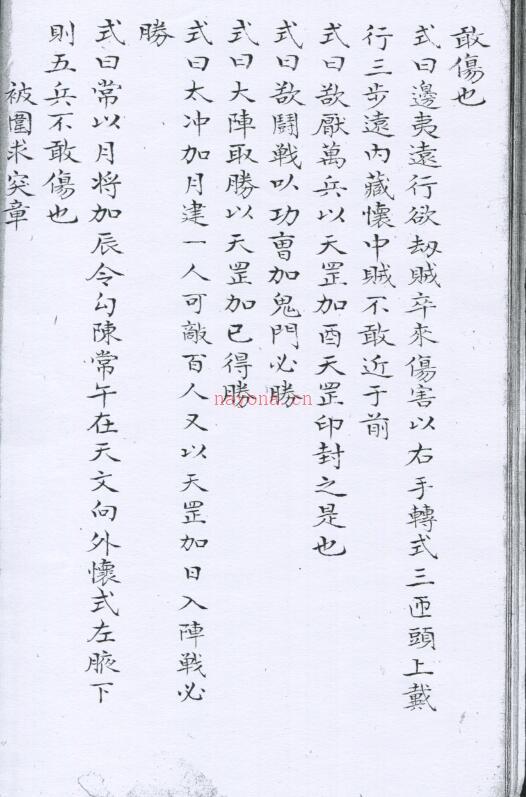 敢傷也
式曰邊夷遠行欲劫賊卒來傷害以右手轉式三匝頭上戴
行三步遠內藏懷中賊不敢近于前
式曰欲厭萬兵以天罡加酉天罡印封之是也
式曰欲鬪戰以功曺加鬼門必勝
式曰大陣取勝以天罡加已得勝
式曰太冲加月建一人可敵百人又以天罡加日入陣戰必
勝
式曰常以月将加辰令勾陳常午在天文向外懷式左腋下
則五兵不敢傷也
被圍求突章
nayona.cn